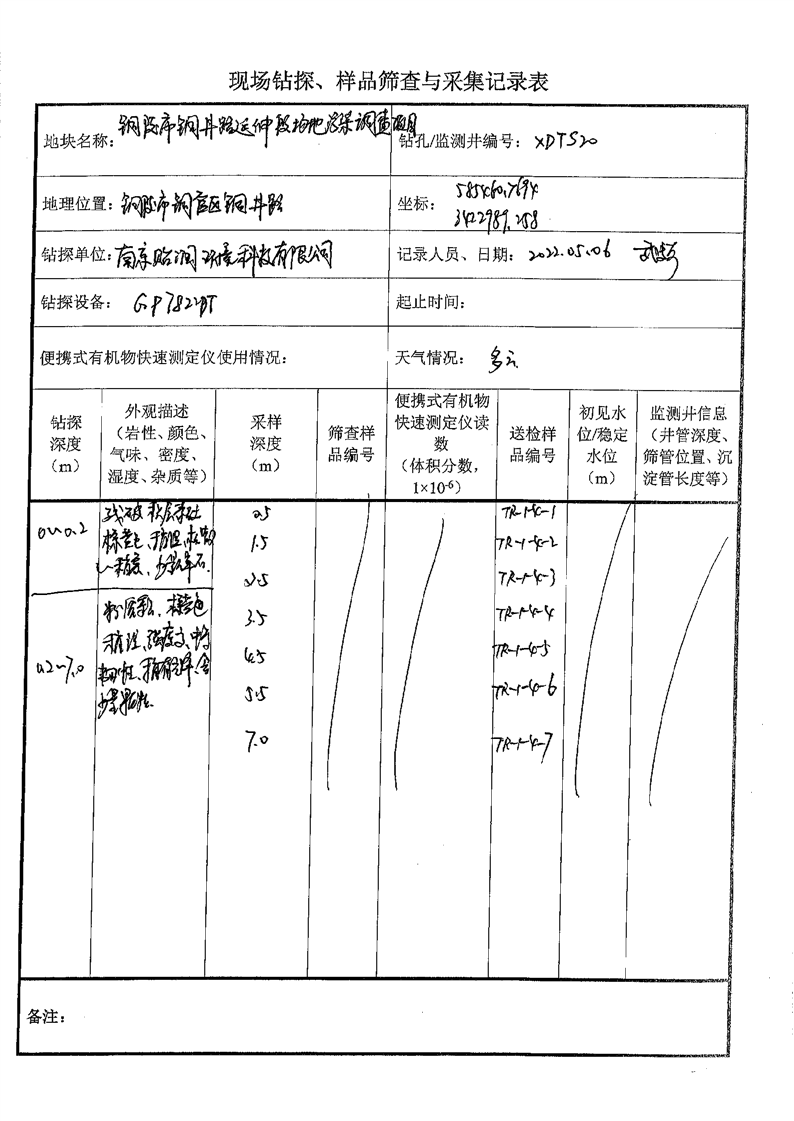 现场钻探、样品筛查与采集记录表
地块名称: 铜陵市铜井路延伸段场地污染调查项目
钻孔/监测井编号: XDTS20
地理位置: 铜陵市铜官区铜井路
坐标: 585460.7694
3422989.258
钻探单位: 南京贻润环境科技有限公司
记录人员、日期: 2022.05.06
钻探设备: GP7822DT
起止时间:
便携式有机物快速测定仪使用情况:
天气情况: 多云
钻探
深度
(m)
外观描述
(岩性、颜色、
气味、密度、
湿度、杂质等)
采样
深度
(m)
筛查样
品编号
便携式有机物
快速测定仪读
数
(体积分数,
1×10⁻⁶)
送检样
品编号
初见水
位/稳定
水位
(m)
监测井信息
(井管深度、
筛管位置、沉
淀管长度等)
0~0.2
0.5
TR-1-4-1
1.5
TR-1-4-2
2.5
TR-1-4-3
0.2~7.0
粉质黏土、棕黄色
3.5
TR-1-4-4
4.5
TR-1-4-5
5.5
TR-1-4-6
7.0
TR-1-4-7
备注: